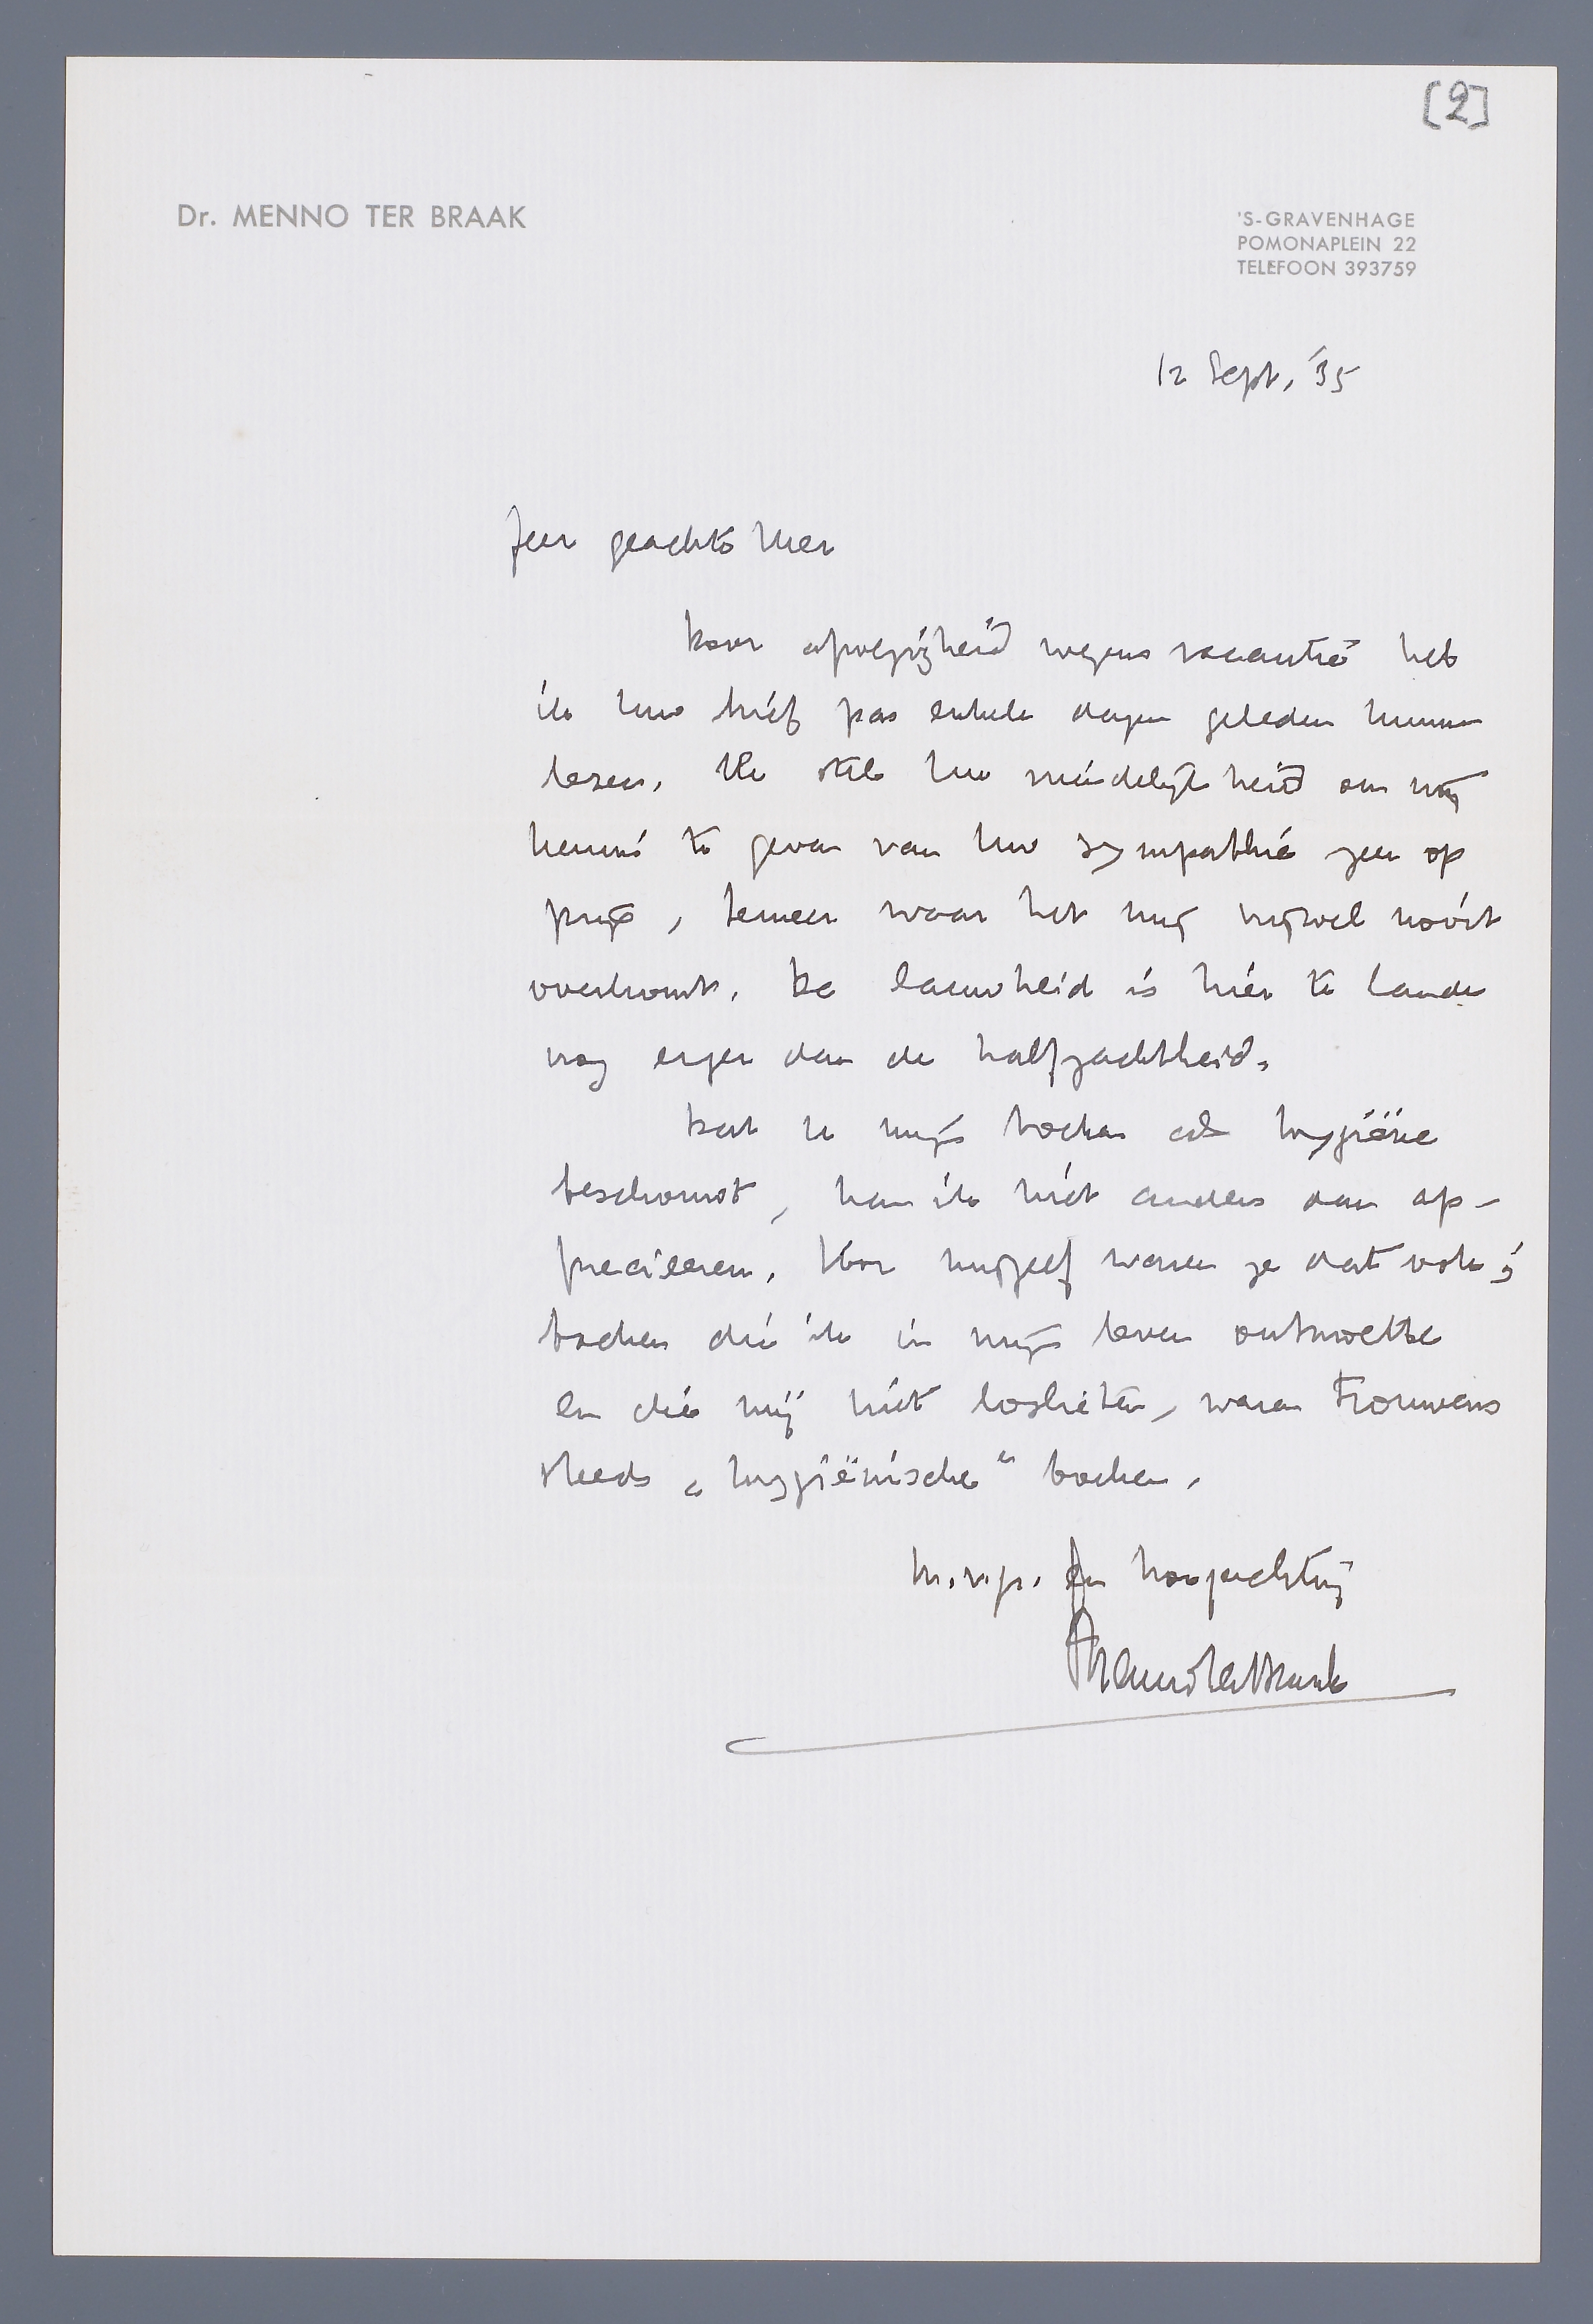 [2]
Dr. MENNO TER BRAAK
'S-GRAVENHAGE
POMONAPLEIN 22
TELEFOON 393759
12 Sept. '35
Zeer geachte Heer
Door afwezigheid wegens vacantie heb
ik Uw brief pas enkele dagen geleden kunnen
lezen. Ik stel Uw vriendelijkheid om mij
kennis te geven van Uw sympathie zeer op
prijs, temeer waar het mij vrijwel nooit
overkomt. De lauwheid is hier te lande
nog erger dan de halfzachtheid.
Dat U mijn boeken als hygiëne
beschouwt, kan ik niet anders dan ap-
precieeren. Voor mijzelf waren ze dat ook;
boeken die ik in mijn leven ontmoette
en die mij niet loslieten, waren trouwens
steeds „hygiënische" boeken.
m.v.gr. en hoogachting
Menno ter Braak